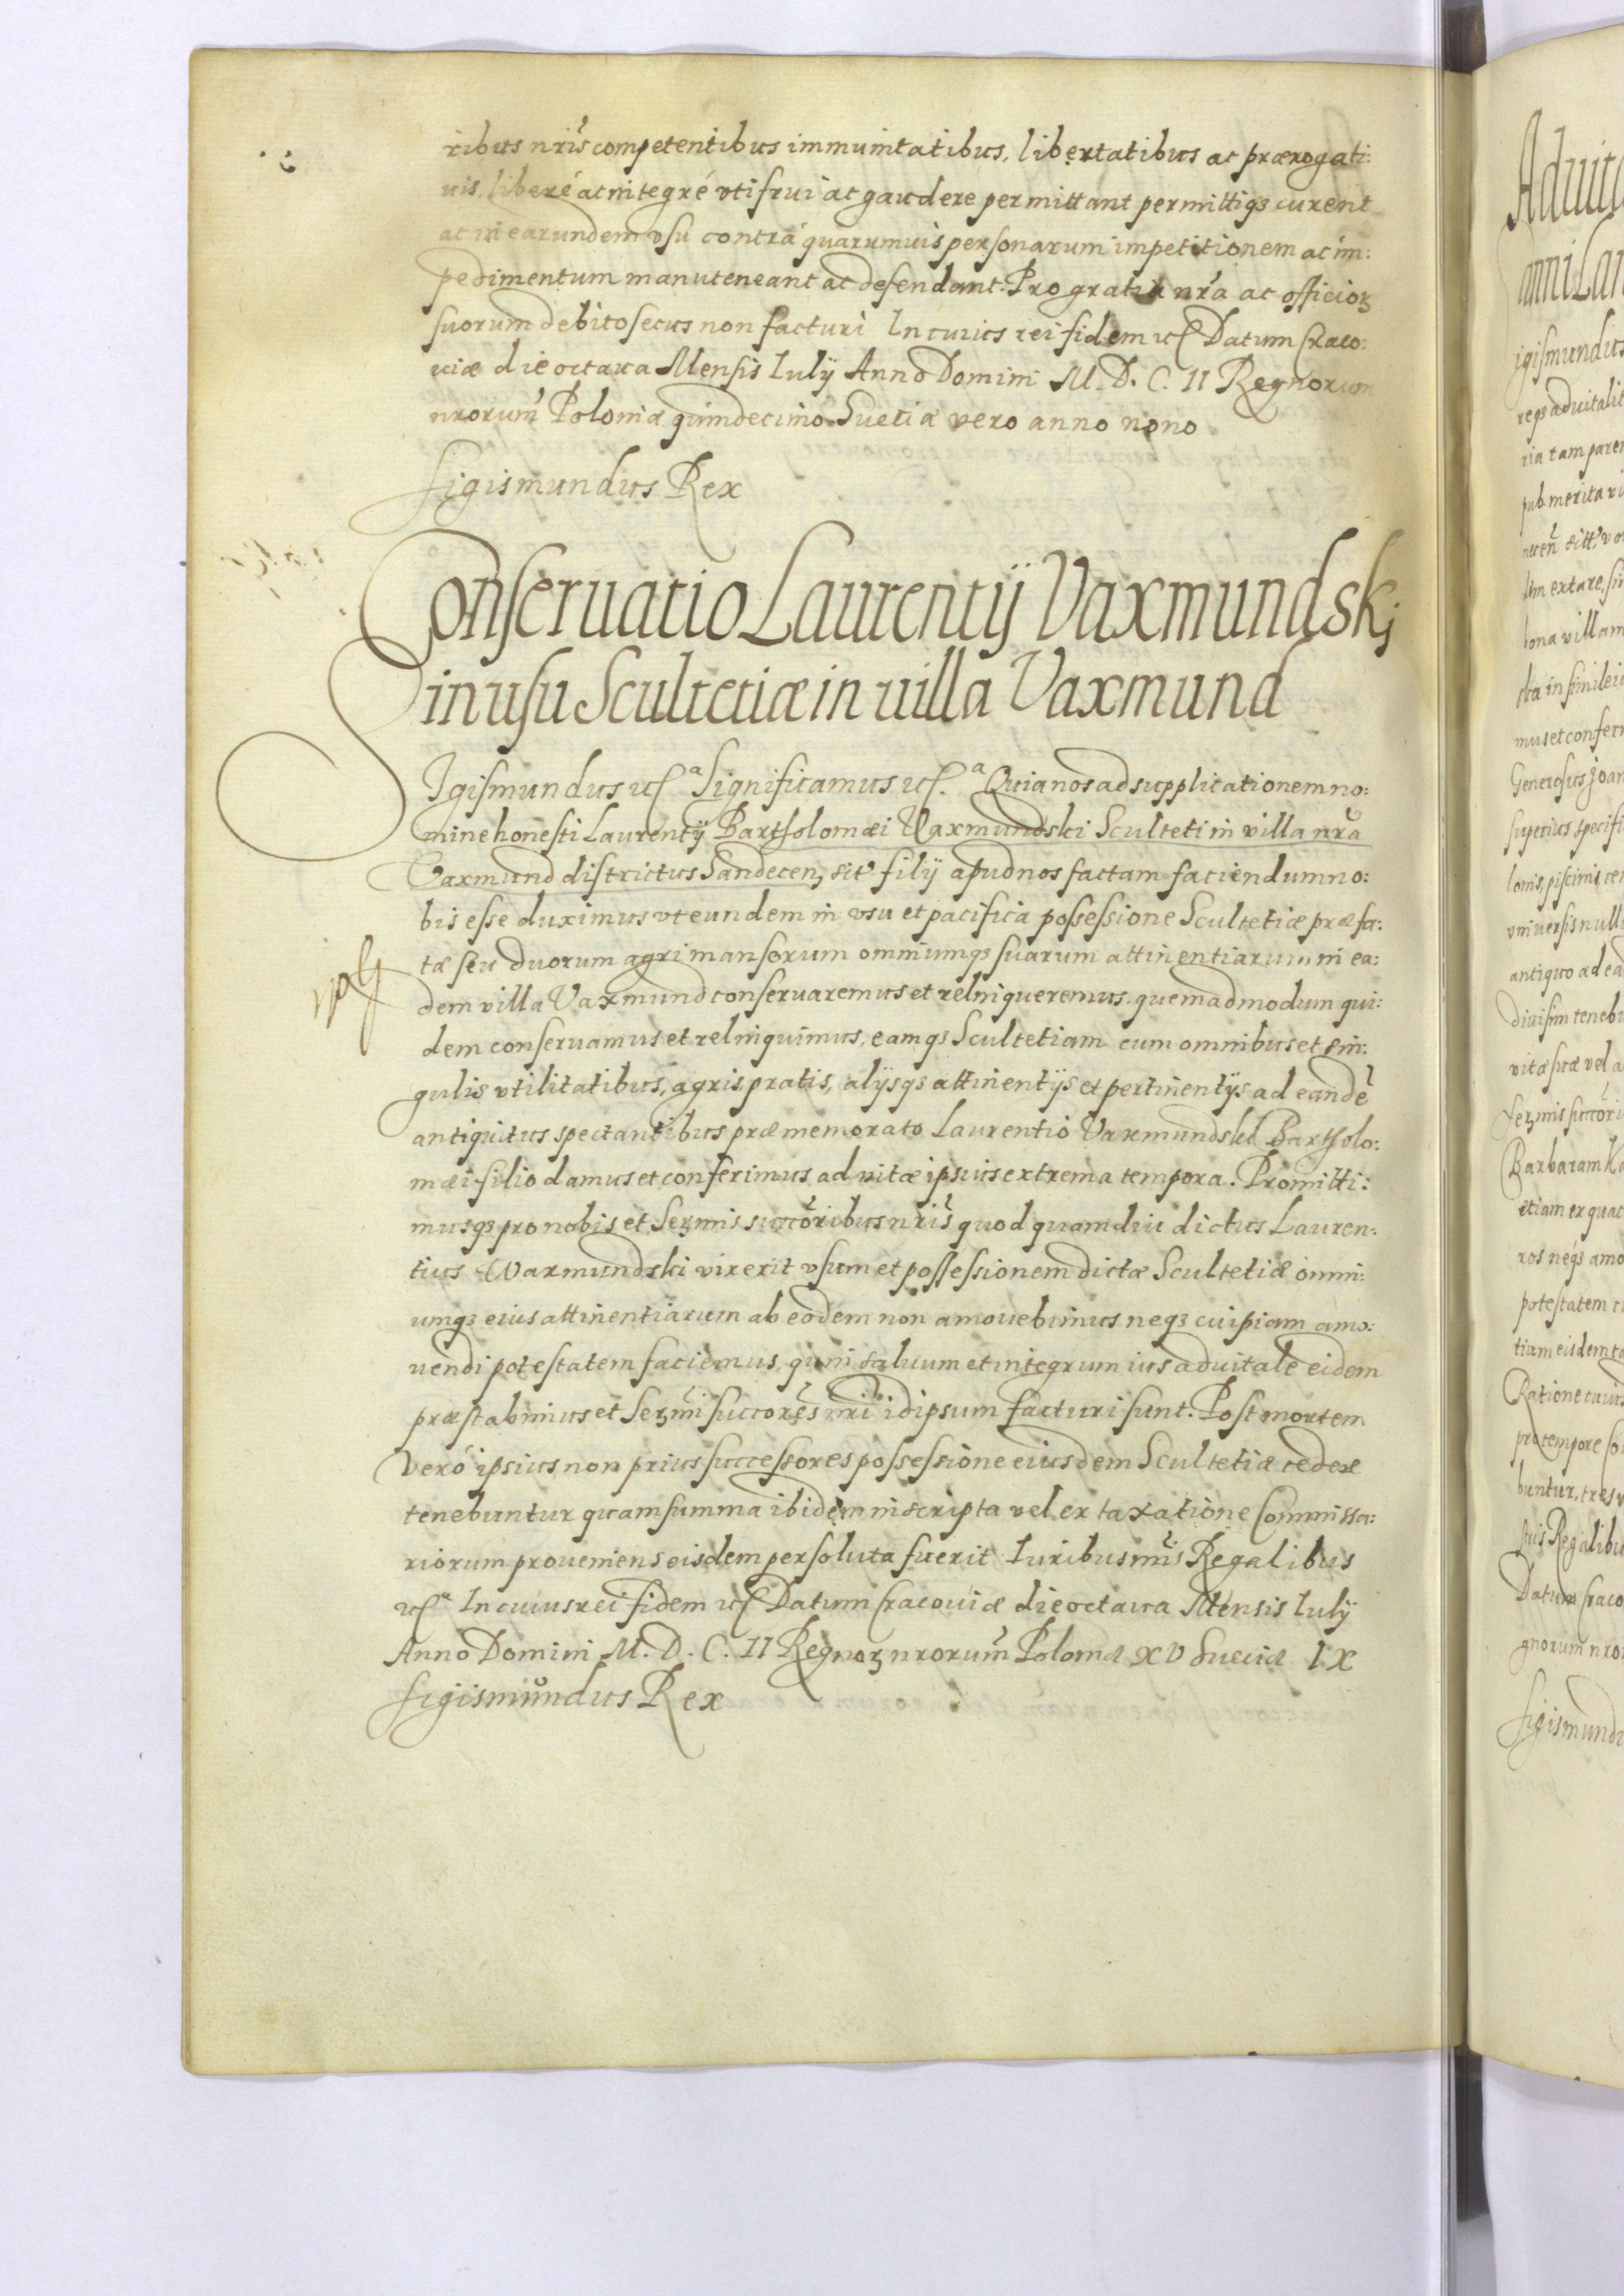 ribus nr̃is competentibus immunitatibus, libertatibus ac prærogati:
uis. liberé ac integré vti frui ac gaudere permittant permittiqz curent
ac in earundem vsu contrà quarumuis personarum impetitionem ac im:
pedimentum manuteneant ac defendant. Pro gratia nr̃a ac officioꝝ
suorum debito secus non facturi In cuius rei fidem etc Datum Craco:
uiæ die octaua Mensis Iulÿ Anno Domini M. D. C. II Regnorum
nrorum̃ Poloniæ quindecimo Sueciæ vero anno nono
Sigismundus Rex
Conseruatio Laurentÿ Vaxmundskj
in usu Scultetiæ in uilla Vaxmund
Sigismundus etcᵃ Significamus etc.ᵃ Quia nos ad supplicationem no:
mine honesti Laurentÿ Bartholomæi Vaxmundski Sculteti in villa nr̃a
Vaxmund districtus Sandecenꝫ sitæ filÿ apud nos factam faciendum no:
bis esse duximus vt eundem in vsu et pacifica possessione Scultetiæ præfa:
tæ seu duorum agri mansorum omniumqz suarum attinentiarum in ea:
dem villa Vaxmund conseruaremus et relinqueremus. quemadmodum qui:
dem conseruamus et relinquimus, eamqz Scultetiam cum omnibus et sin:
gulis vtilitatibus, agris pratis, alÿsqz attinentÿs et pertinentÿs ad eandẽ
antiquitus spectantibus præmemorato Laurentio Vaxmundski Bartholo:
mæi filio damus et conferimus ad vitæ ipsius extrema tempora. Promitti:
musqz pro nobis et Serꝫmis succõribus nr̃is quod quamdiu dictus Lauren:
tius Waxmundski vixerit vsum et possessionem dictæ Scultetiæ omni:
umqz eius attinentiarum ab eodem non amouebimus neqz cuipiam amo:
uendi potestatem faciemus, quin saluum et integrum ius aduitale eidem
præstabimus et Serꝫmi succõres nr̃i idipsum facturi sunt. Post mortem
veró ipsius non prius successores possessione eiusdem Scultetiæ cedere
tenebuntur quam summa ibidem inscripta vel ex taxatione Commissa:
riorum proueniens eisdem persoluta fuerit Iuribus nr̃is Regalibus
etcᵃ In cuius rei fidem etc Datum Cracouiæ die octaua Mensis Iulÿ
Anno Domini M. D. C. II Regnoꝝ nrorum̃ Poloniæ XV Sueciæ IX
Sigismundus Rex